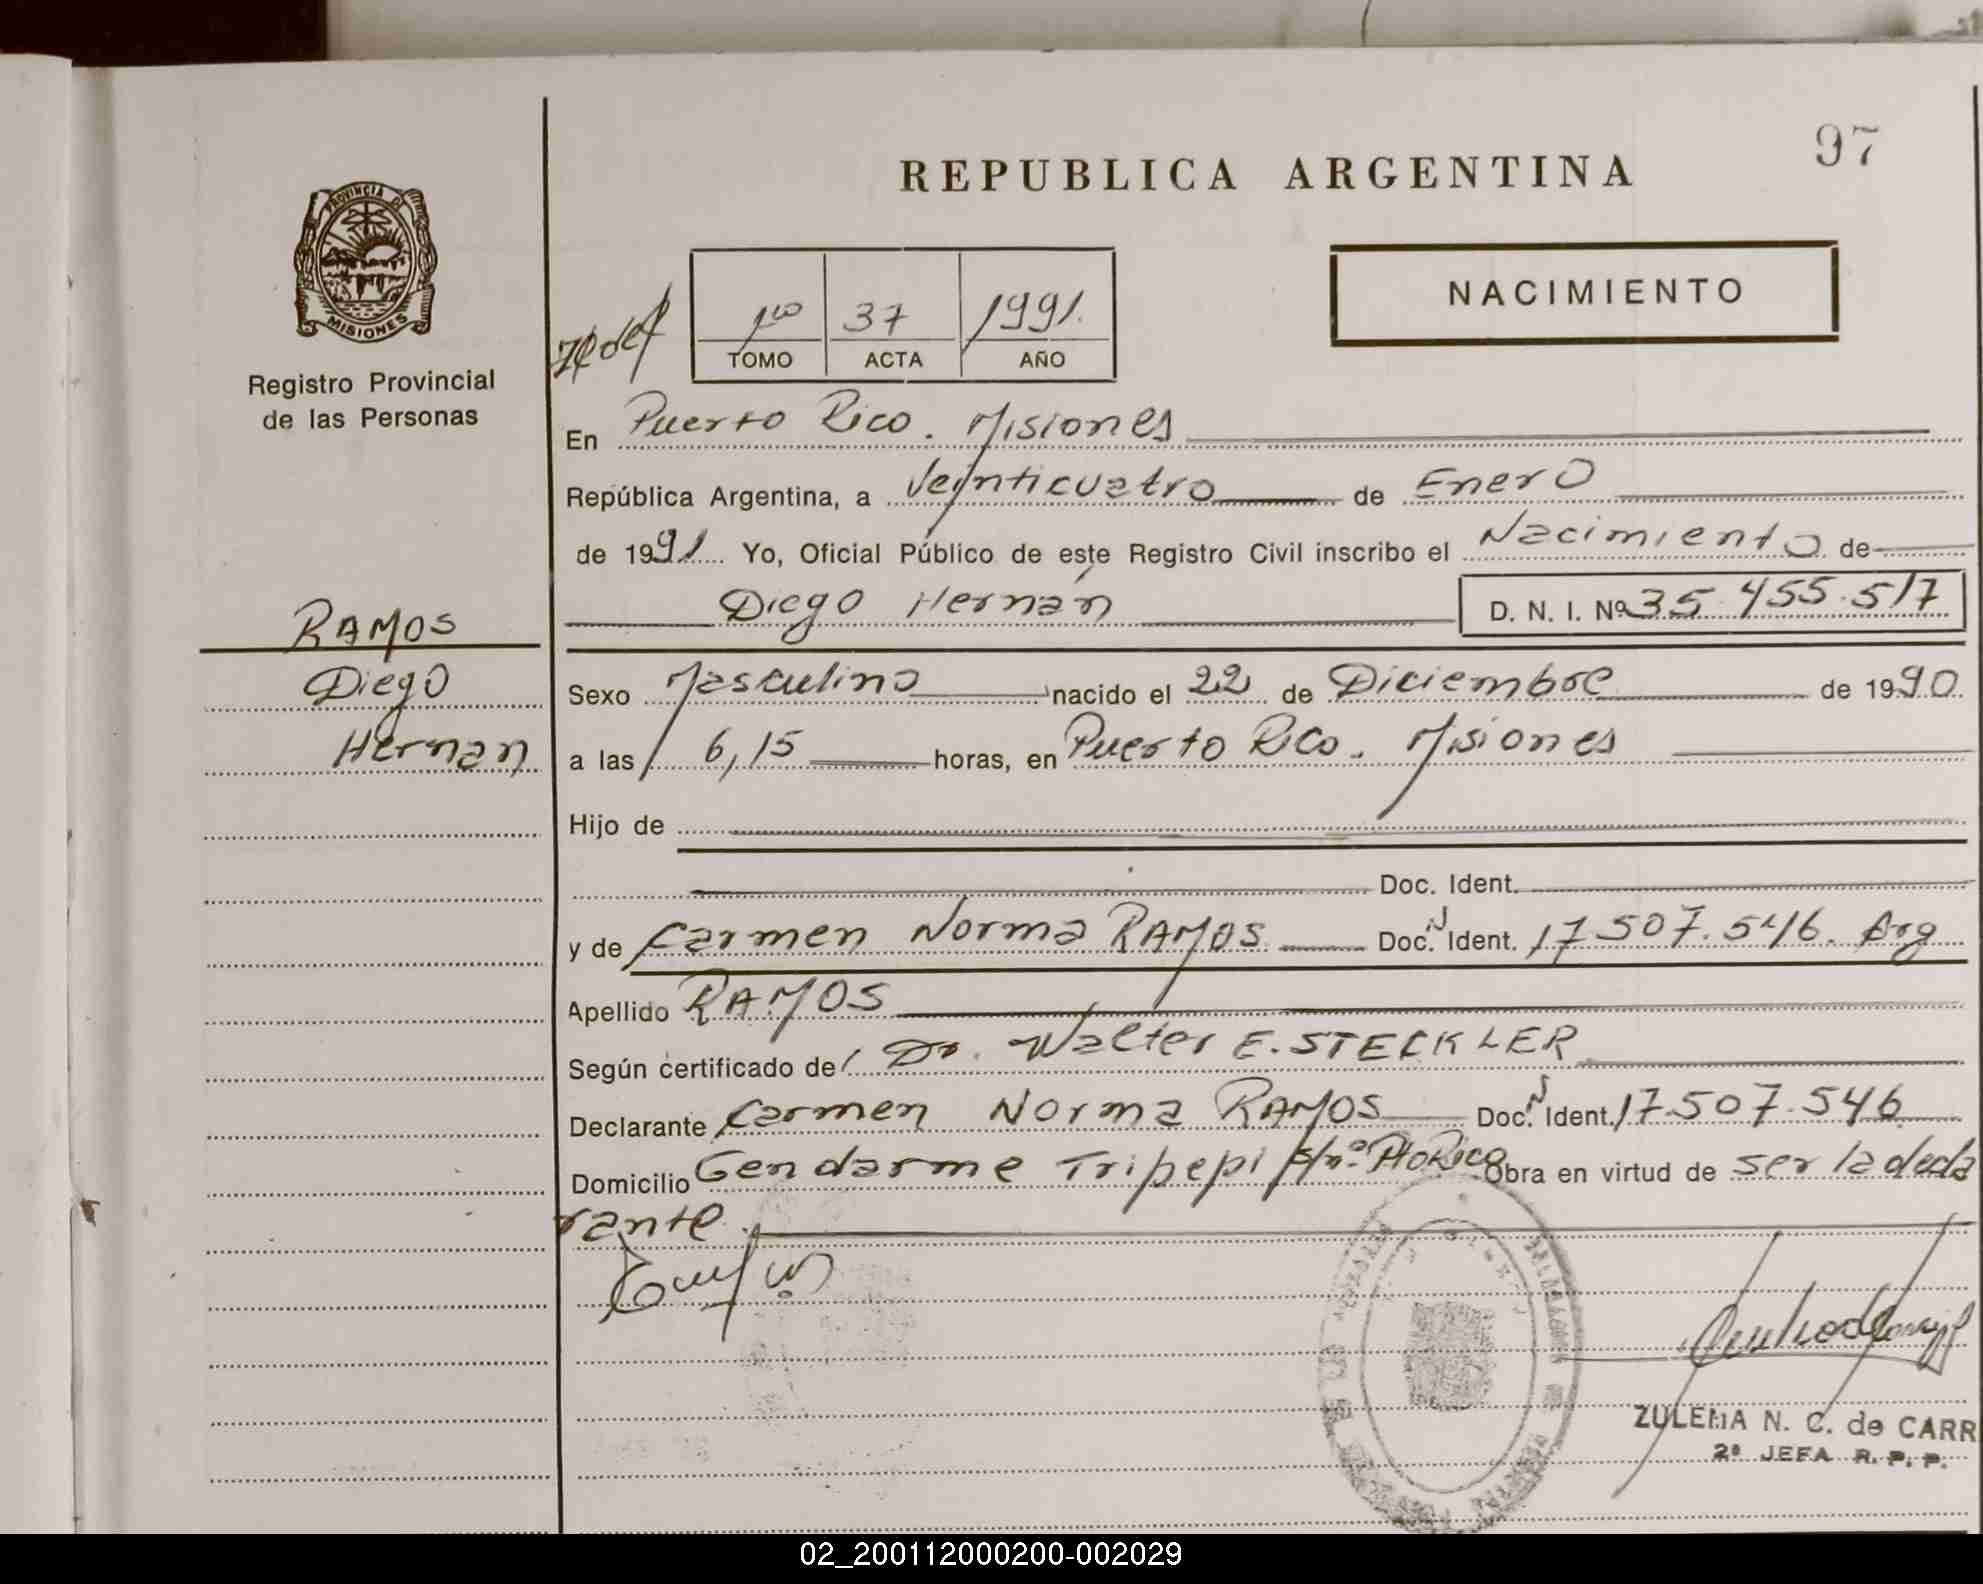 97
REPUBLICA ARGENTINA
PROVINCIA DE
MISIONES
Registro Provincial
de las Personas
1ro 37 1991.
TOMO ACTA AÑO
NACIMIENTO
En Puerto Rico. Misiones
República Argentina, a Veinticuatro de Enero
de 1991 Yo, Oficial Público de este Registro Civil inscribo el Nacimiento de
Diego Hernán D. N. I. Nº 35.455.517
RAMOS
Diego
Hernan
Sexo Masculino nacido el 22 de Diciembre de 1990
a las 6,15 horas, en Puerto Rico. Misiones
Hijo de
Doc. Ident.
y de Carmen Norma RAMOS Doc. Ident. 17.507.546. Arg
Apellido RAMOS
Según certificado de Dr. Walter E. STECKLER
Declarante Carmen Norma RAMOS Doc. Ident. 17.507.546
Domicilio Gendarme Tripepi s/nº Pto Rico Obra en virtud de ser la decla
rante.
ZULEMA N. C. de CARR
2ª JEFA R. P. P.
02_200112000200-002029